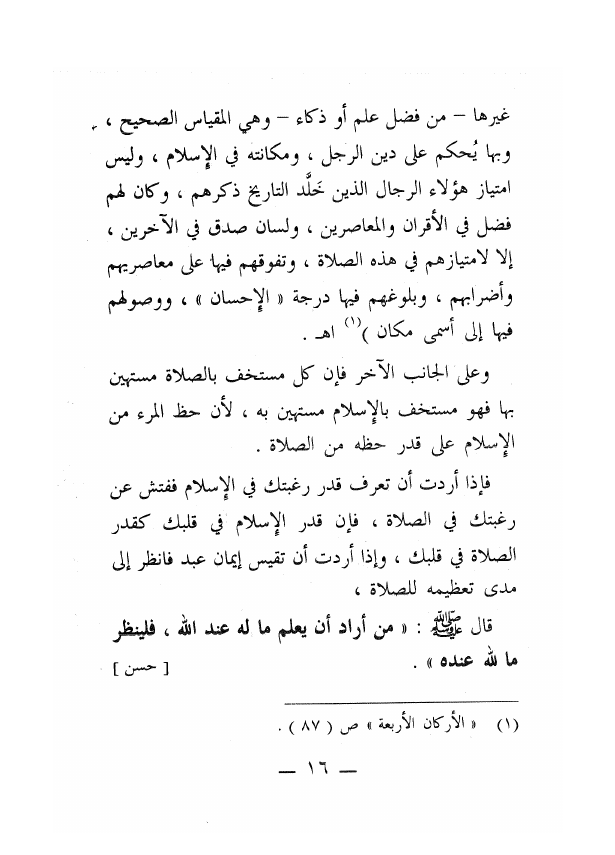 غيرها – من فضل علم أو ذكاء – وهي المقياس الصحيح ،
وبها يُحكم على دين الرجل ، ومكانته في الإسلام ، وليس
امتياز هؤلاء الرجال الذين خَلَّد التاريخ ذكرهم ، وكان لهم
فضل في الأقران والمعاصرين ، ولسان صدق في الآخرين ،
إلا لامتيازهم في هذه الصلاة ، وتفوقهم فيها على معاصريهم
وأضرابهم ، وبلوغهم فيها درجة « الإحسان » ، ووصولهم
فيها إلى أسمى مكان )(١) اهـ .
وعلى الجانب الآخر فإن كل مستخف بالصلاة مستهين
بها فهو مستخف بالإسلام مستهين به ، لأن حظ المرء من
الإسلام على قدر حظه من الصلاة .
فإذا أردت أن تعرف قدر رغبتك في الإسلام ففتش عن
رغبتك في الصلاة ، فإن قدر الإسلام في قلبك كقدر
الصلاة في قلبك ، وإذا أردت أن تقيس إيمان عبد فانظر إلى
مدى تعظيمه للصلاة ،
قال ﷺ : « من أراد أن يعلم ما له عند الله ، فلينظر
ما لله عنده » . [ حسن ]
(١) « الأركان الأربعة » ص ( ٨٧ ) .
— ١٦ —